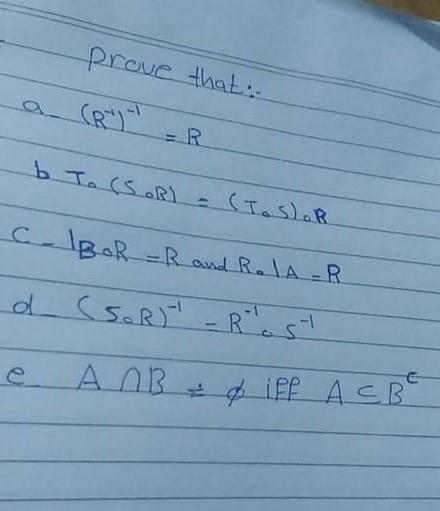 prove that:-
a- (R⁻¹)⁻¹ = R
b T∘(S∘R) = (T∘S)∘R
C- |B∘R = R and R∘|A = R
d- (S∘R)⁻¹ = R⁻¹∘S⁻¹
e- A∩B ≠ ϕ iff A⊂Bᶜ